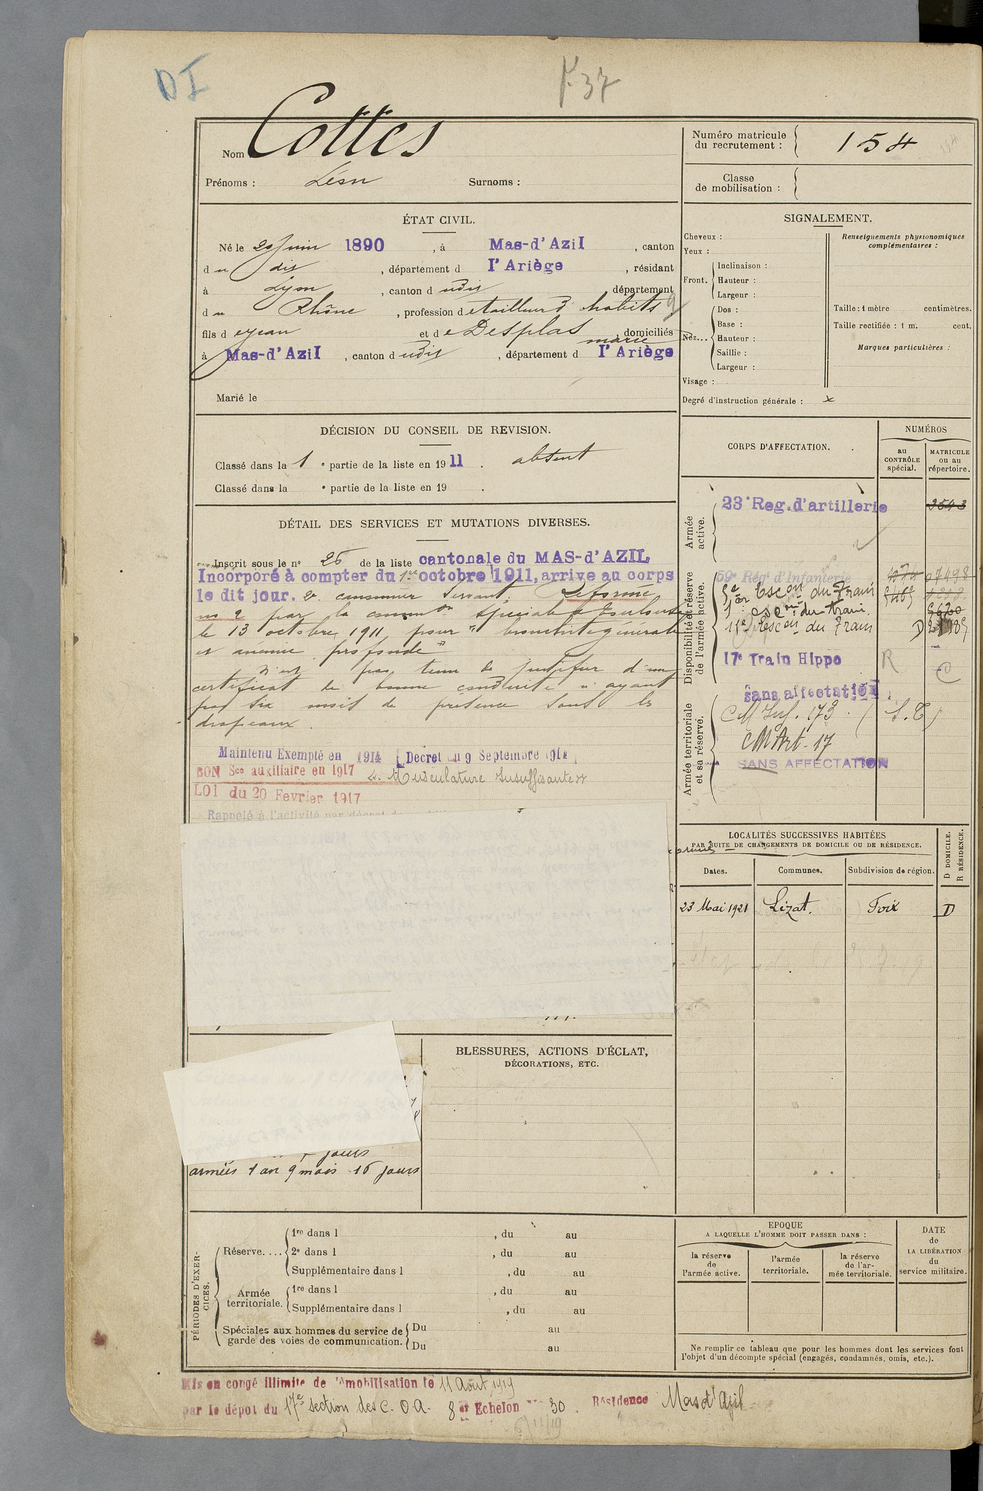 D I
F. 37
Nom Cottes
Prénoms : Léon Surnoms :
Numéro matricule du recrutement : 154
Classe de mobilisation :
ÉTAT CIVIL.
Né le 20 Juin 1890, à Mas-d'Azil, canton
du dit, département d l'Ariège, résidant
à Lyon, canton d udit département
du Rhône, profession de tailleur d'habits
fils de Jean et de Desplas marie domiciliés
à Mas-d'Azil, canton d udit, département d l'Ariège
Marié le
SIGNALEMENT.
Cheveux :
Yeux :
Front. Inclinaison :
Hauteur :
Largeur :
Nez... Dos :
Base :
Hauteur :
Saillie :
Largeur :
Visage :
Degré d'instruction générale : x
Renseignements physionomiques complémentaires :
Taille : 1 mètre centimètres.
Taille rectifiée : 1 m. cent.
Marques particulières :
DÉCISION DU CONSEIL DE REVISION.
Classé dans la 1e partie de la liste en 1911. absent
Classé dans la e partie de la liste en 19 .
DÉTAIL DES SERVICES ET MUTATIONS DIVERSES.
Inscrit sous le n° 26 de la liste cantonale du MAS-d'AZIL
Incorporé à compter du 1er octobre 1911, arrive au corps
le dit jour. Réformé
n° 2 par la common spéciale de Toulouse
le 13 octobre 1911, pour "bronchite générale
et anémie profonde"
N'est pas tenu de justifier d'un
certificat de bonne conduite n'ayant
pas six mois de présence sous les
drapeaux.
Maintenu Exempté en 1914 [Décret du 9 Septembre 1914
BON Sce auxiliaire en 1917 Musculature Insuffisante
LOI du 20 Fevrier 1917
Rappelé à l'activité par décret
jours
armées 1 an 9 mois 16 jours
BLESSURES, ACTIONS D'ÉCLAT,
DÉCORATIONS, ETC.
CORPS D'AFFECTATION.
NUMÉROS
au CONTRÔLE spécial.
MATRICULE ou au répertoire.
Armée active.
23e Reg. d'artillerie
Disponibilité et réserve de l'armée active.
59e Rég d'Infanterie
5e Escon du Train
1er escon du train
11e Escon du Train
17e Train Hippo R C
sans affectation
Armée territoriale et sa réserve.
CM Inf. 173. (S.T)
CM Art. 17
SANS AFFECTATION
LOCALITÉS SUCCESSIVES HABITÉES
PAR SUITE DE CHANGEMENTS DE DOMICILE OU DE RÉSIDENCE.
D DOMICILE. R RÉSIDENCE.
Dates. Communes. Subdivision de région.
23 Mai 1921 Lézat. Foix D
PÉRIODES D'EXERCICES.
Réserve.... 1re dans l , du au
2e dans l , du au
Supplémentaire dans l , du au
Armée territoriale. 1re dans l , du au
Supplémentaire dans l , du au
Spéciales aux hommes du service de garde des voies de communication. Du au
Du au
EPOQUE
A LAQUELLE L'HOMME DOIT PASSER DANS :
la réserve de l'armée active.
l'armée territoriale.
la réserve de l'armée territoriale.
DATE de LA LIBÉRATION du service militaire.
Ne remplir ce tableau que pour les hommes dont les services font
l'objet d'un décompte spécial (engagés, condamnés, omis, etc.).
Mis en congé illimité de démobilisation le 11 Août 1919
par le dépôt du 17e section des C.O.A. 8e Echelon n° 30. Résidence Mas d'Azil